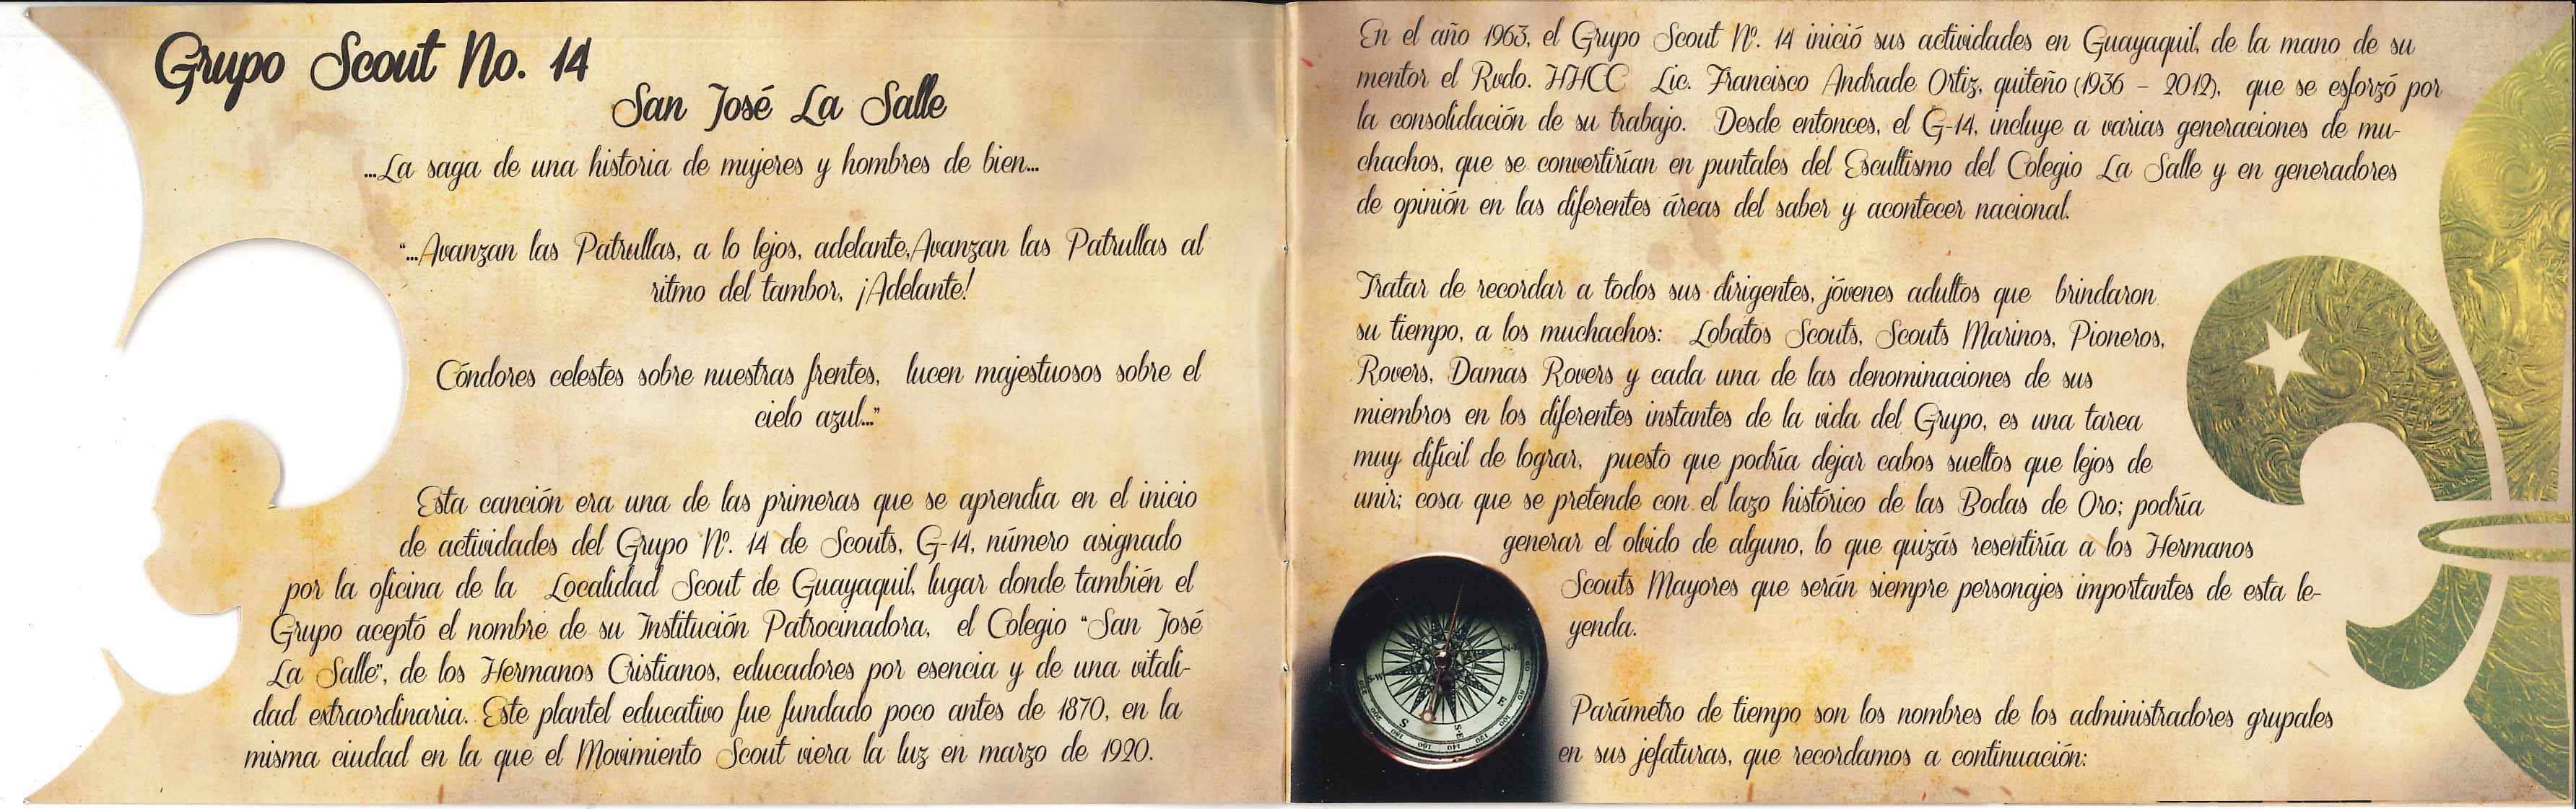 Grupo Scout No. 14
San José La Salle
...La saga de una historia de mujeres y hombres de bien...
“...Avanzan las Patrullas, a lo lejos, adelante,Avanzan las Patrullas al
ritmo del tambor, ¡Adelante!
Cóndores celestes sobre nuestras frentes, lucen majestuosos sobre el
cielo azul...”
Esta canción era una de las primeras que se aprendía en el inicio
de actividades del Grupo Nº. 14 de Scouts, G-14, número asignado
por la oficina de la Localidad Scout de Guayaquil, lugar donde también el
Grupo aceptó el nombre de su Institución Patrocinadora, el Colegio “San José
La Salle”, de los Hermanos Cristianos, educadores por esencia y de una vitali-
dad extraordinaria. Este plantel educativo fue fundado poco antes de 1870, en la
misma ciudad en la que el Movimiento Scout viera la luz en marzo de 1920.
En el año 1963, el Grupo Scout Nº. 14 inició sus actividades en Guayaquil, de la mano de su
mentor el Rvdo. HHCC Lic. Francisco Andrade Ortiz, quiteño (1936 - 2012), que se esforzó por
la consolidación de su trabajo. Desde entonces, el G-14, incluye a varias generaciones de mu-
chachos, que se convertirían en puntales del Escultismo del Colegio La Salle y en generadores
de opinión en las diferentes áreas del saber y acontecer nacional.
Tratar de recordar a todos sus dirigentes, jóvenes adultos que brindaron
su tiempo, a los muchachos: Lobatos Scouts, Scouts Marinos, Pioneros,
Rovers, Damas Rovers y cada una de las denominaciones de sus
miembros en los diferentes instantes de la vida del Grupo, es una tarea
muy difícil de lograr, puesto que podría dejar cabos sueltos que lejos de
unir; cosa que se pretende con el lazo histórico de las Bodas de Oro; podría
generar el olvido de alguno, lo que quizás resentiría a los Hermanos
Scouts Mayores que serán siempre personajes importantes de esta le-
yenda.
Parámetro de tiempo son los nombres de los administradores grupales
en sus jefaturas, que recordamos a continuación: